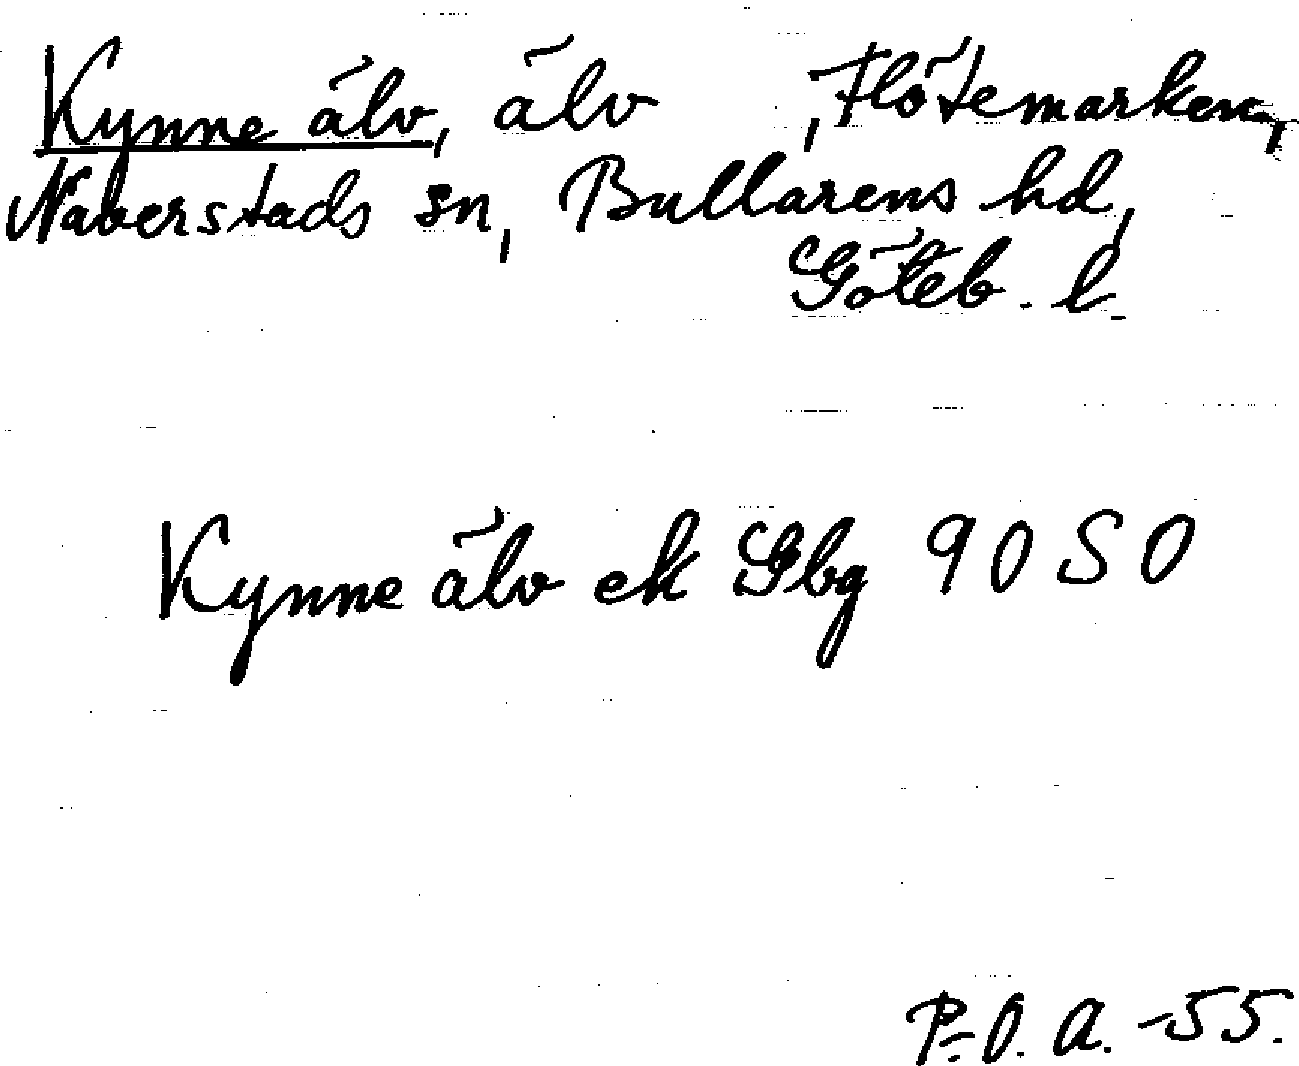 Kynne älv, älv , Flötemarken,
Naverstads sn, Bullarens hd,
Göteb. l.
Kynne älv ek Gbg 90 SO
P.-O. A. -55.